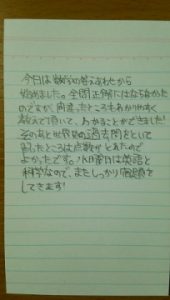 今日は数学の答えあわせから
始めました。全問正解にはならなかった
のですが、間違ったところもわかりやすく
教えて頂いて、わかることができました!
そのあと世界史の過去問をといて
習したところは点数がとれたので
よかったです。水曜日は英語と
科学なので、またしっかり復習を
してきます!